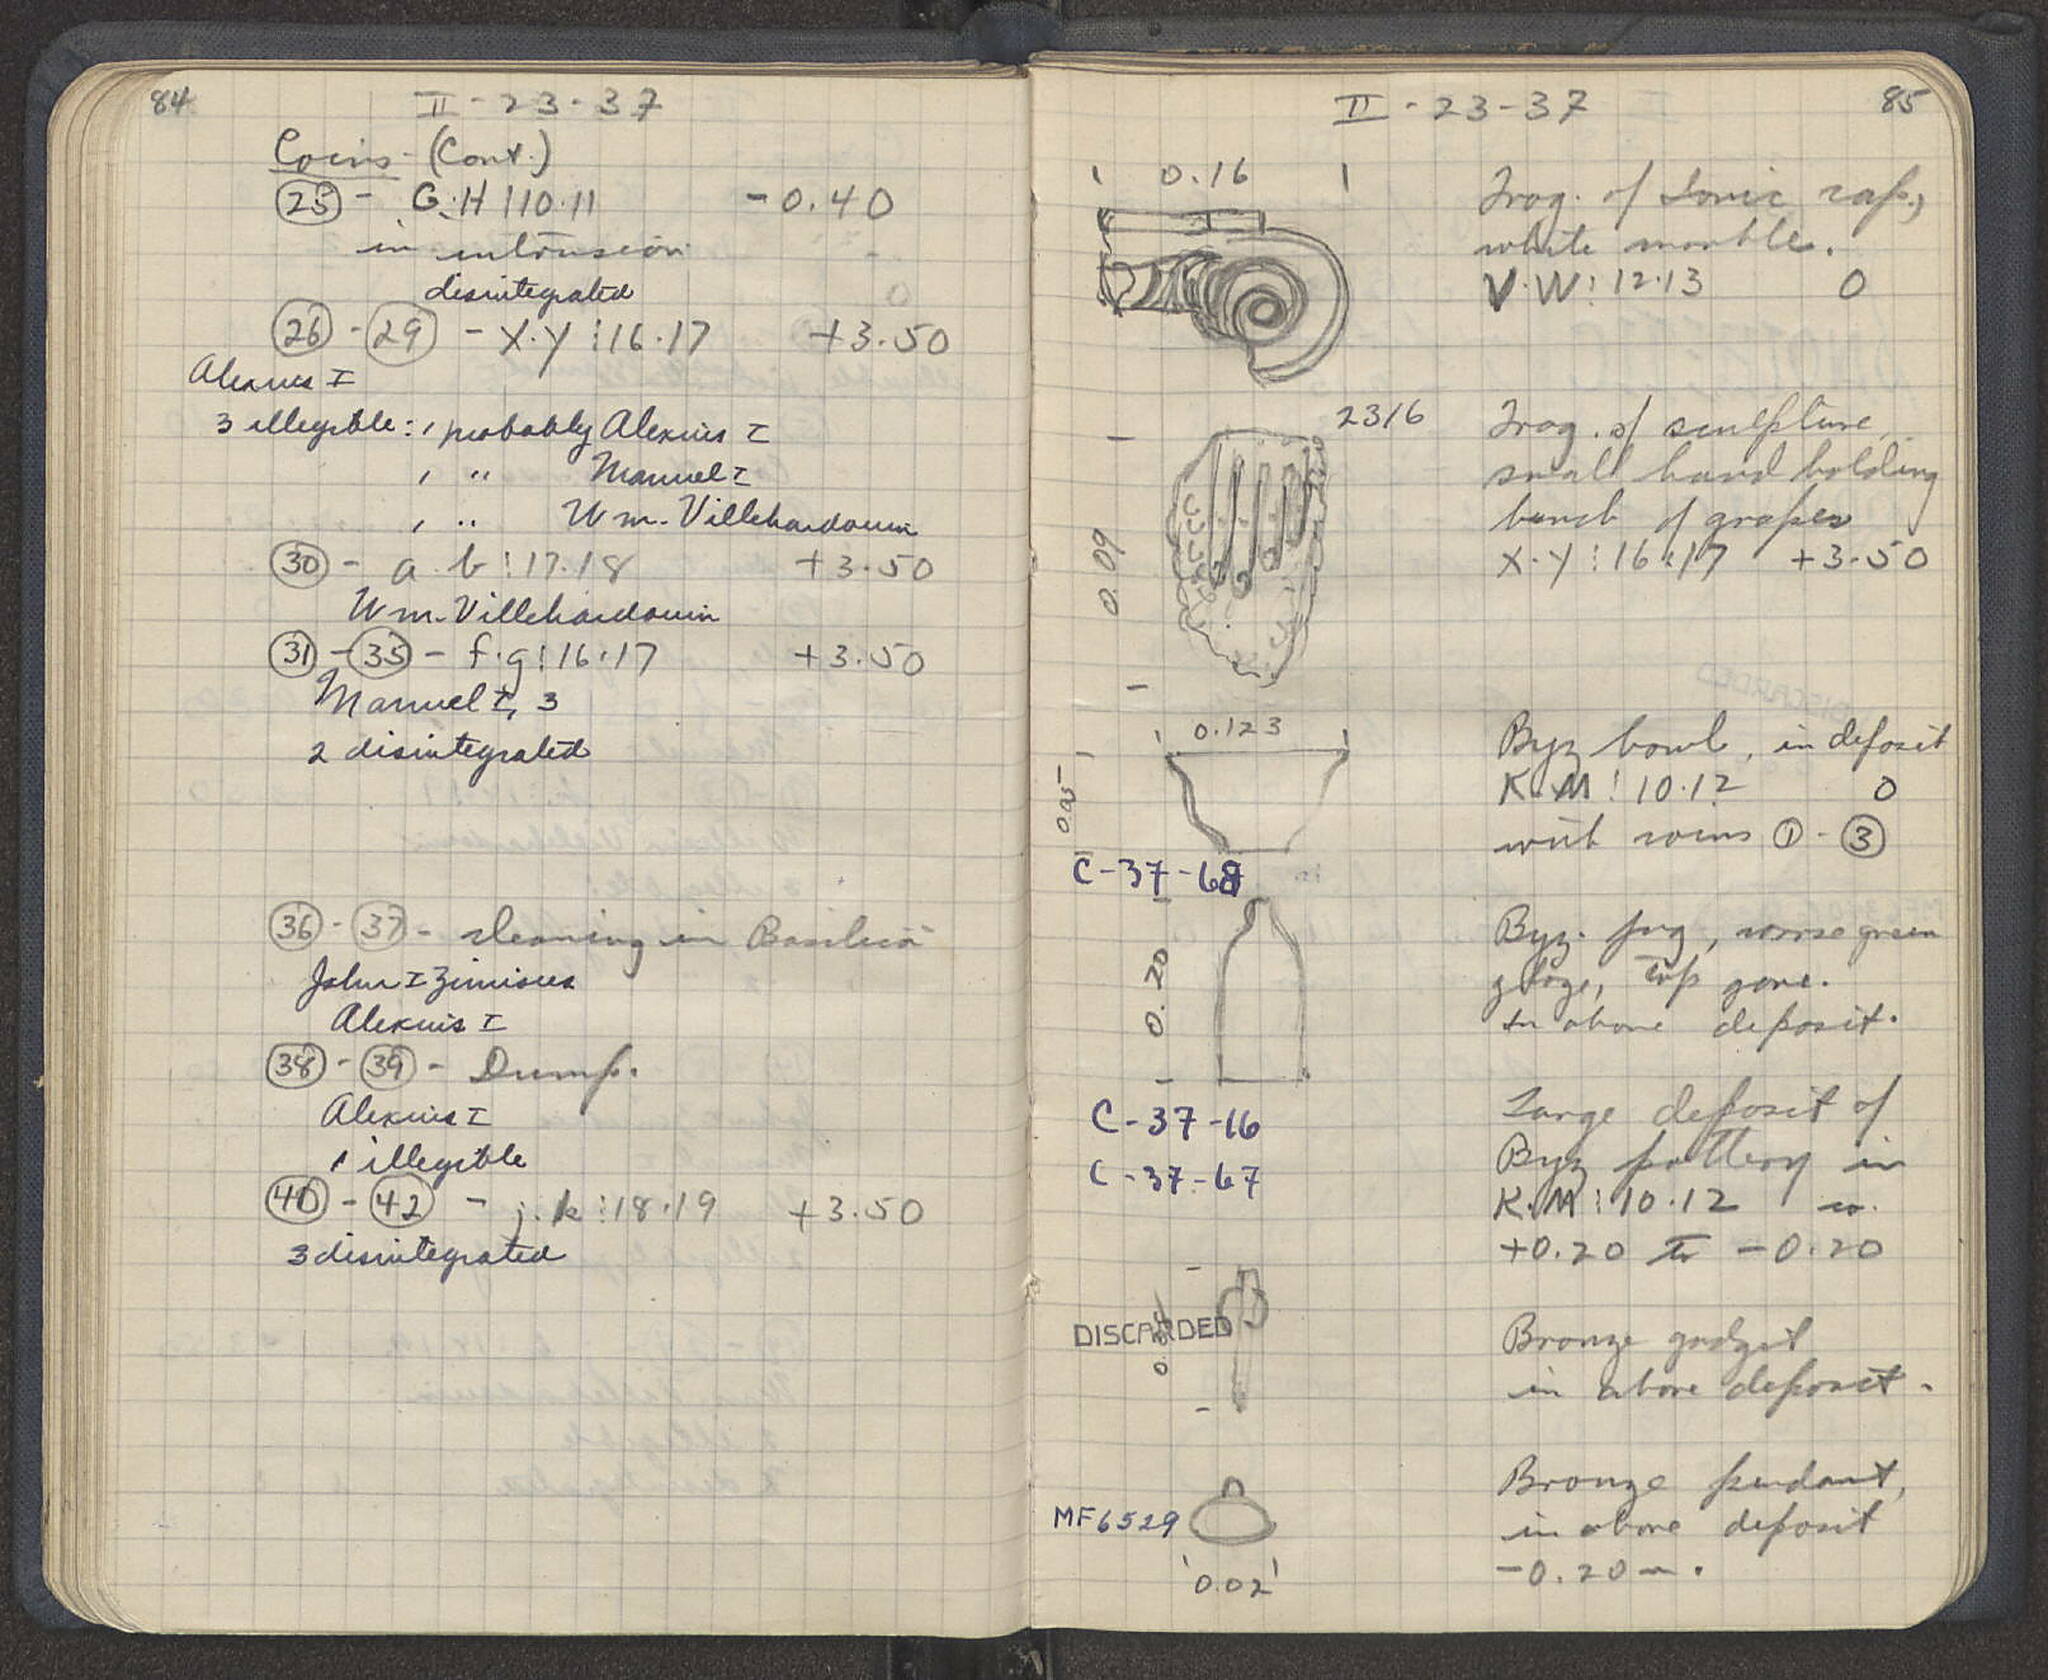 84
II - 23 - 37
Coins - (Cont.)
25 - G.H ! 10.11 - 0.40
in intrusion
disintegrated
26 - 29 - X.Y ! 16.17 +3.50
Alexius I
3 illegible: 1 probably Alexius I
1 " Manuel I
1 " Wm. Villehardouin
30 - a.b ! 17.18 +3.50
Wm. Villehardouin
31 - 35 - f.g ! 16.17 +3.50
Manuel I, 3
2 disintegrated
36 - 37 - cleaning in Basilica
John I Zimisces
Alexius I
38 - 39 - Dump.
Alexius I
1 illegible
40 - 42 - j.k ! 18.19 +3.50
3 disintegrated
II - 23 - 37
85
0.16
Frag. of Ionic cap.,
white marble.
V.W ! 12.13 0
2316
0.09
Frag. of sculpture,
small hand holding
bunch of grapes
X.Y ! 16.17 +3.50
0.123
0.05
Byz bowl, in deposit
K.M ! 10.12 0
with coins 1 - 3
C-37-68
0.20
Byz. jug, coarse green
glaze, top gone.
In above deposit.
C-37-16
C-37-67
Large deposit of
Byz pottery in
K.M ! 10.12
+0.20 to -0.20
DISCARDED
Bronze gadget
in above deposit.
MF6529
0.02
Bronze pendant,
in above deposit
-0.20 m.